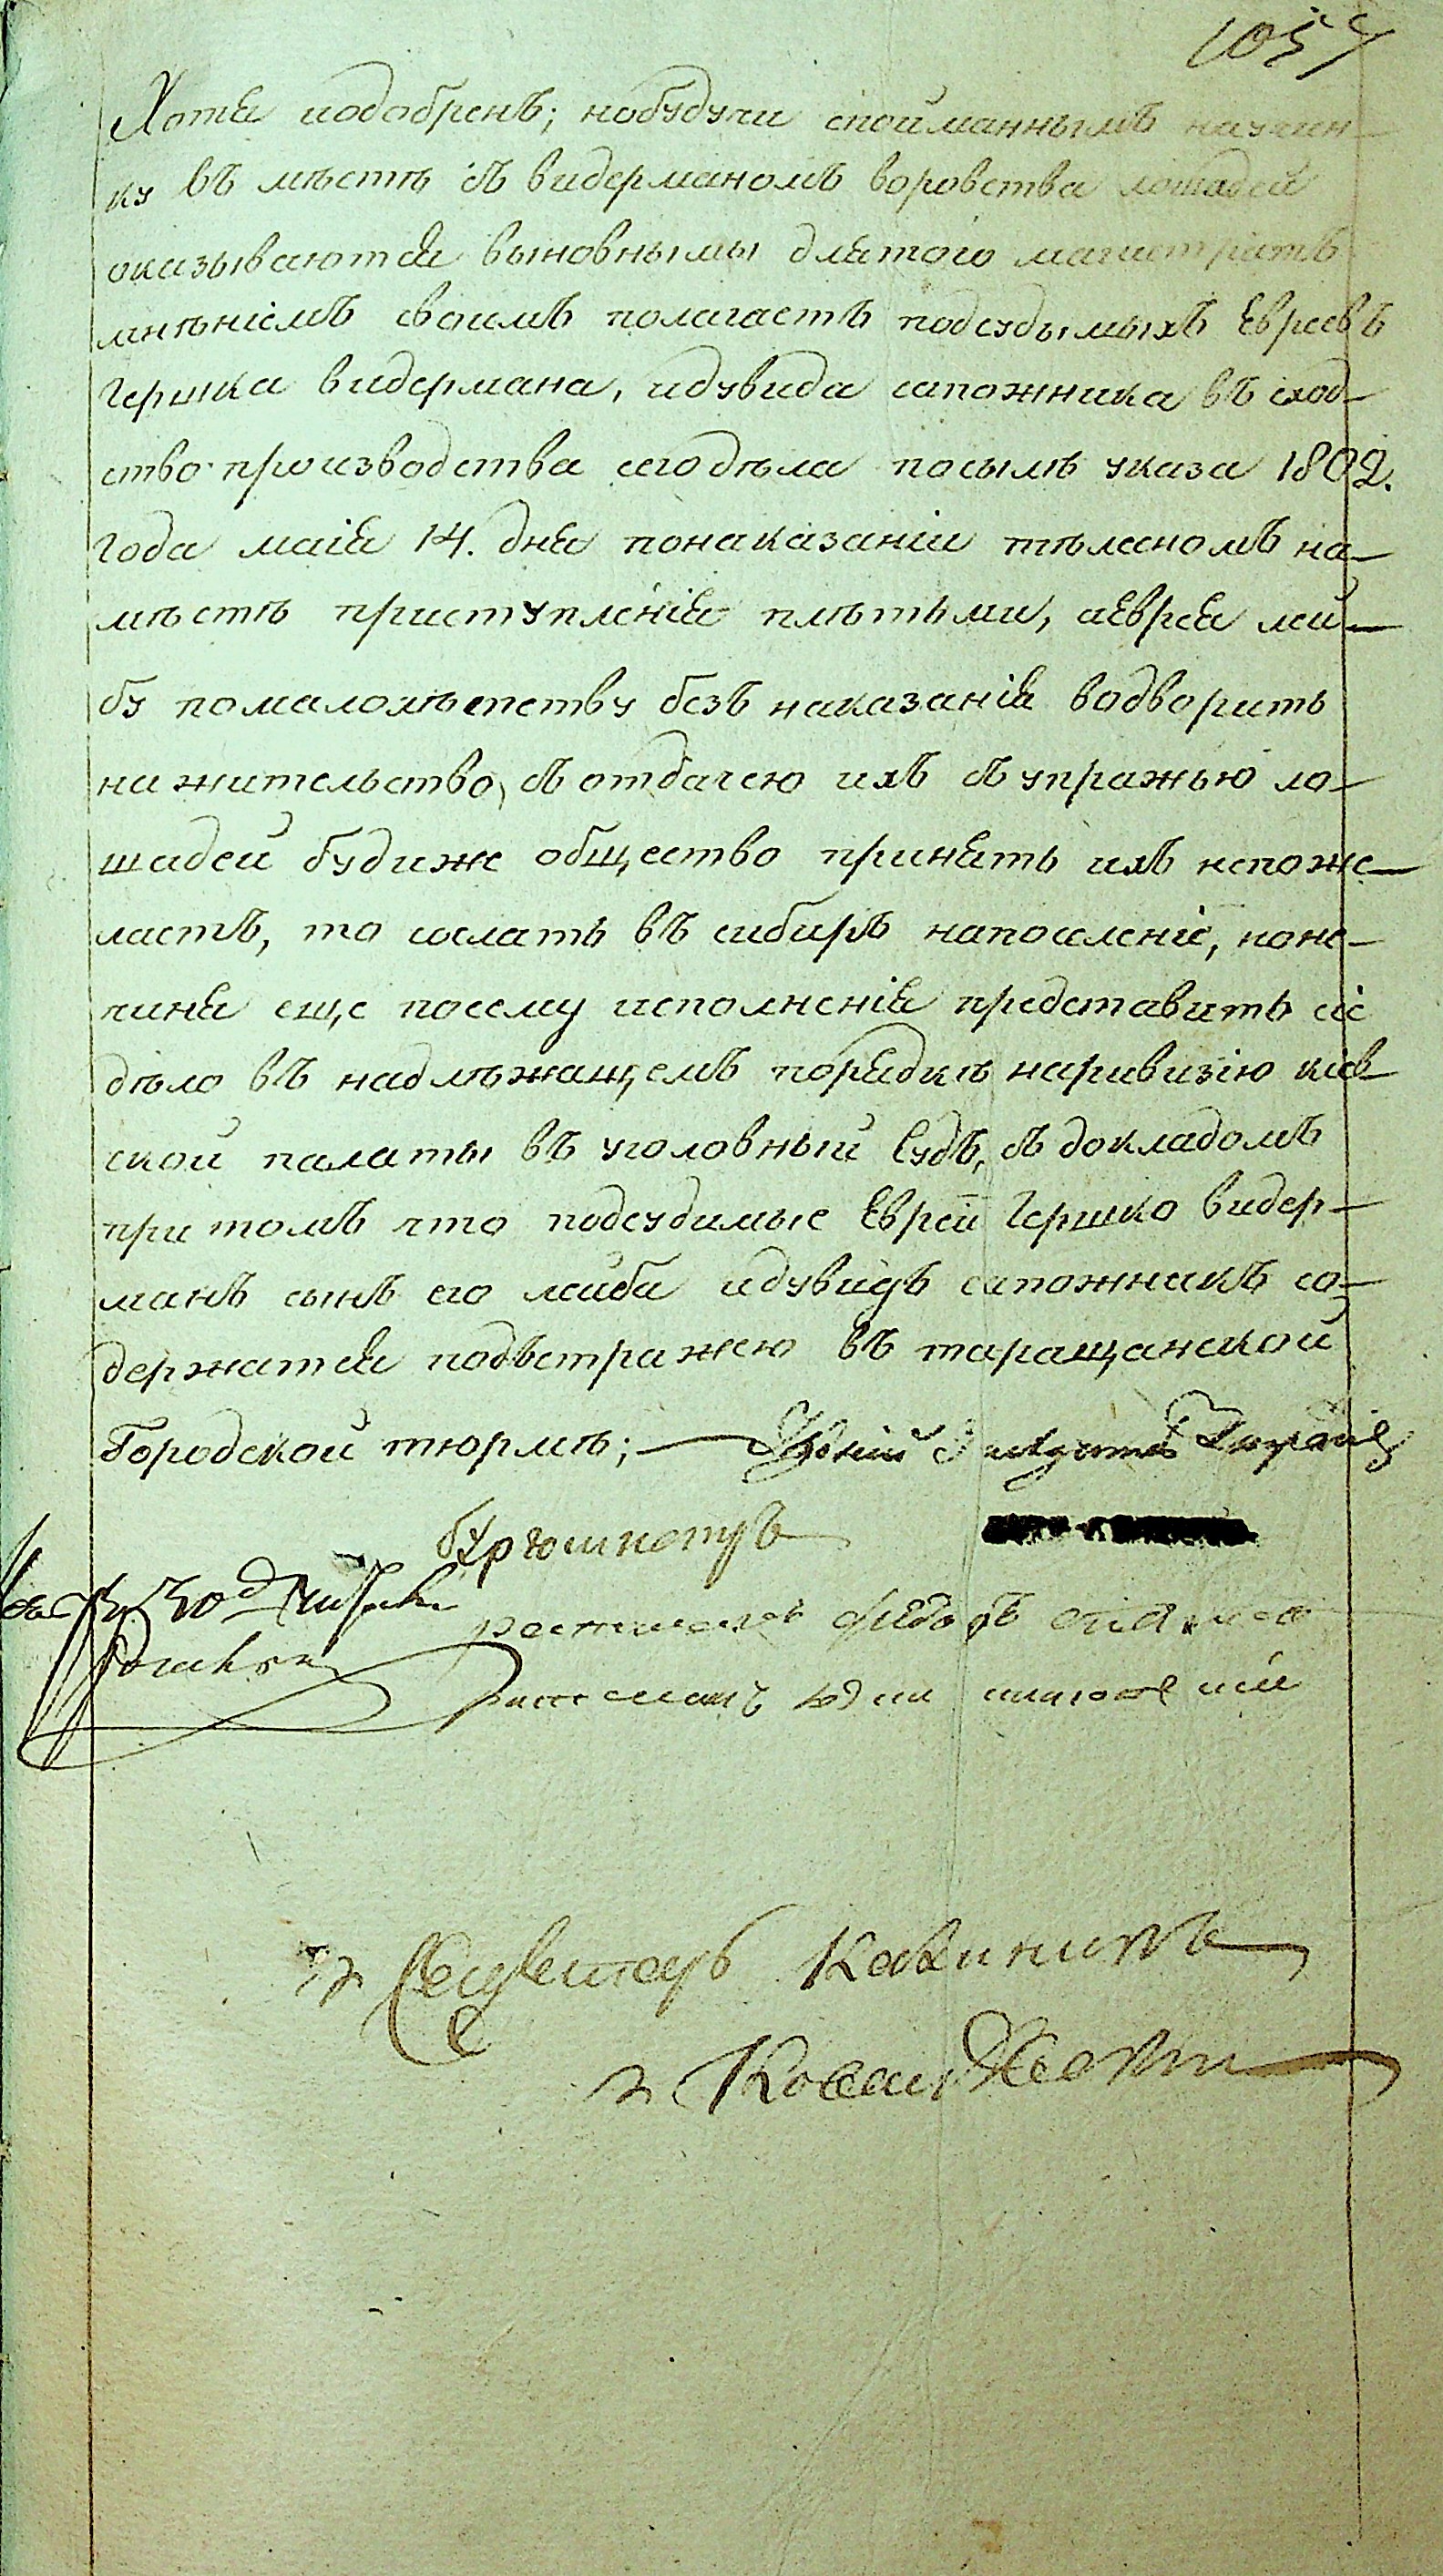 1057
Хотя иодобренъ; нобудучи споиманнымъ научин-
ку въ мѣстѣ съ видерманомъ воровства лошадей
оказываются выновнымы длятого магистратъ
мнѣніемъ своимъ полагаетъ подсудымыхъ Евреевъ
Гершка видермана, идувида сапожника въ сход-
ство производства сегодѣла посылѣ указа 1802.
года маія 14. дня понаказаніи тѣлесномъ на-
мѣстѣ приступленія плѣтьми, аЕврея леи-
бу помалолѣтству безъ наказанія водворить
на жительство, съ отдачею ихъ съ упражью ло-
шадей будиже общество принять ихъ непоже-
лаетъ, то сослать въ сибиръ напоселеніе,ноне-
чиня еще посему исполненія представить сіе
дѣло въ надлѣжащемъ порядкѣ наривизію кіев-
ской палаты въ уголовный Судъ, съ докладомъ
при томъ что подсудимые Евреи Гершко видер-
манъ сынъ его леиба идувидъ сапожникъ со-
держатся подъстражею въ таращанской
Городской тюрмѣ;
Секретарь